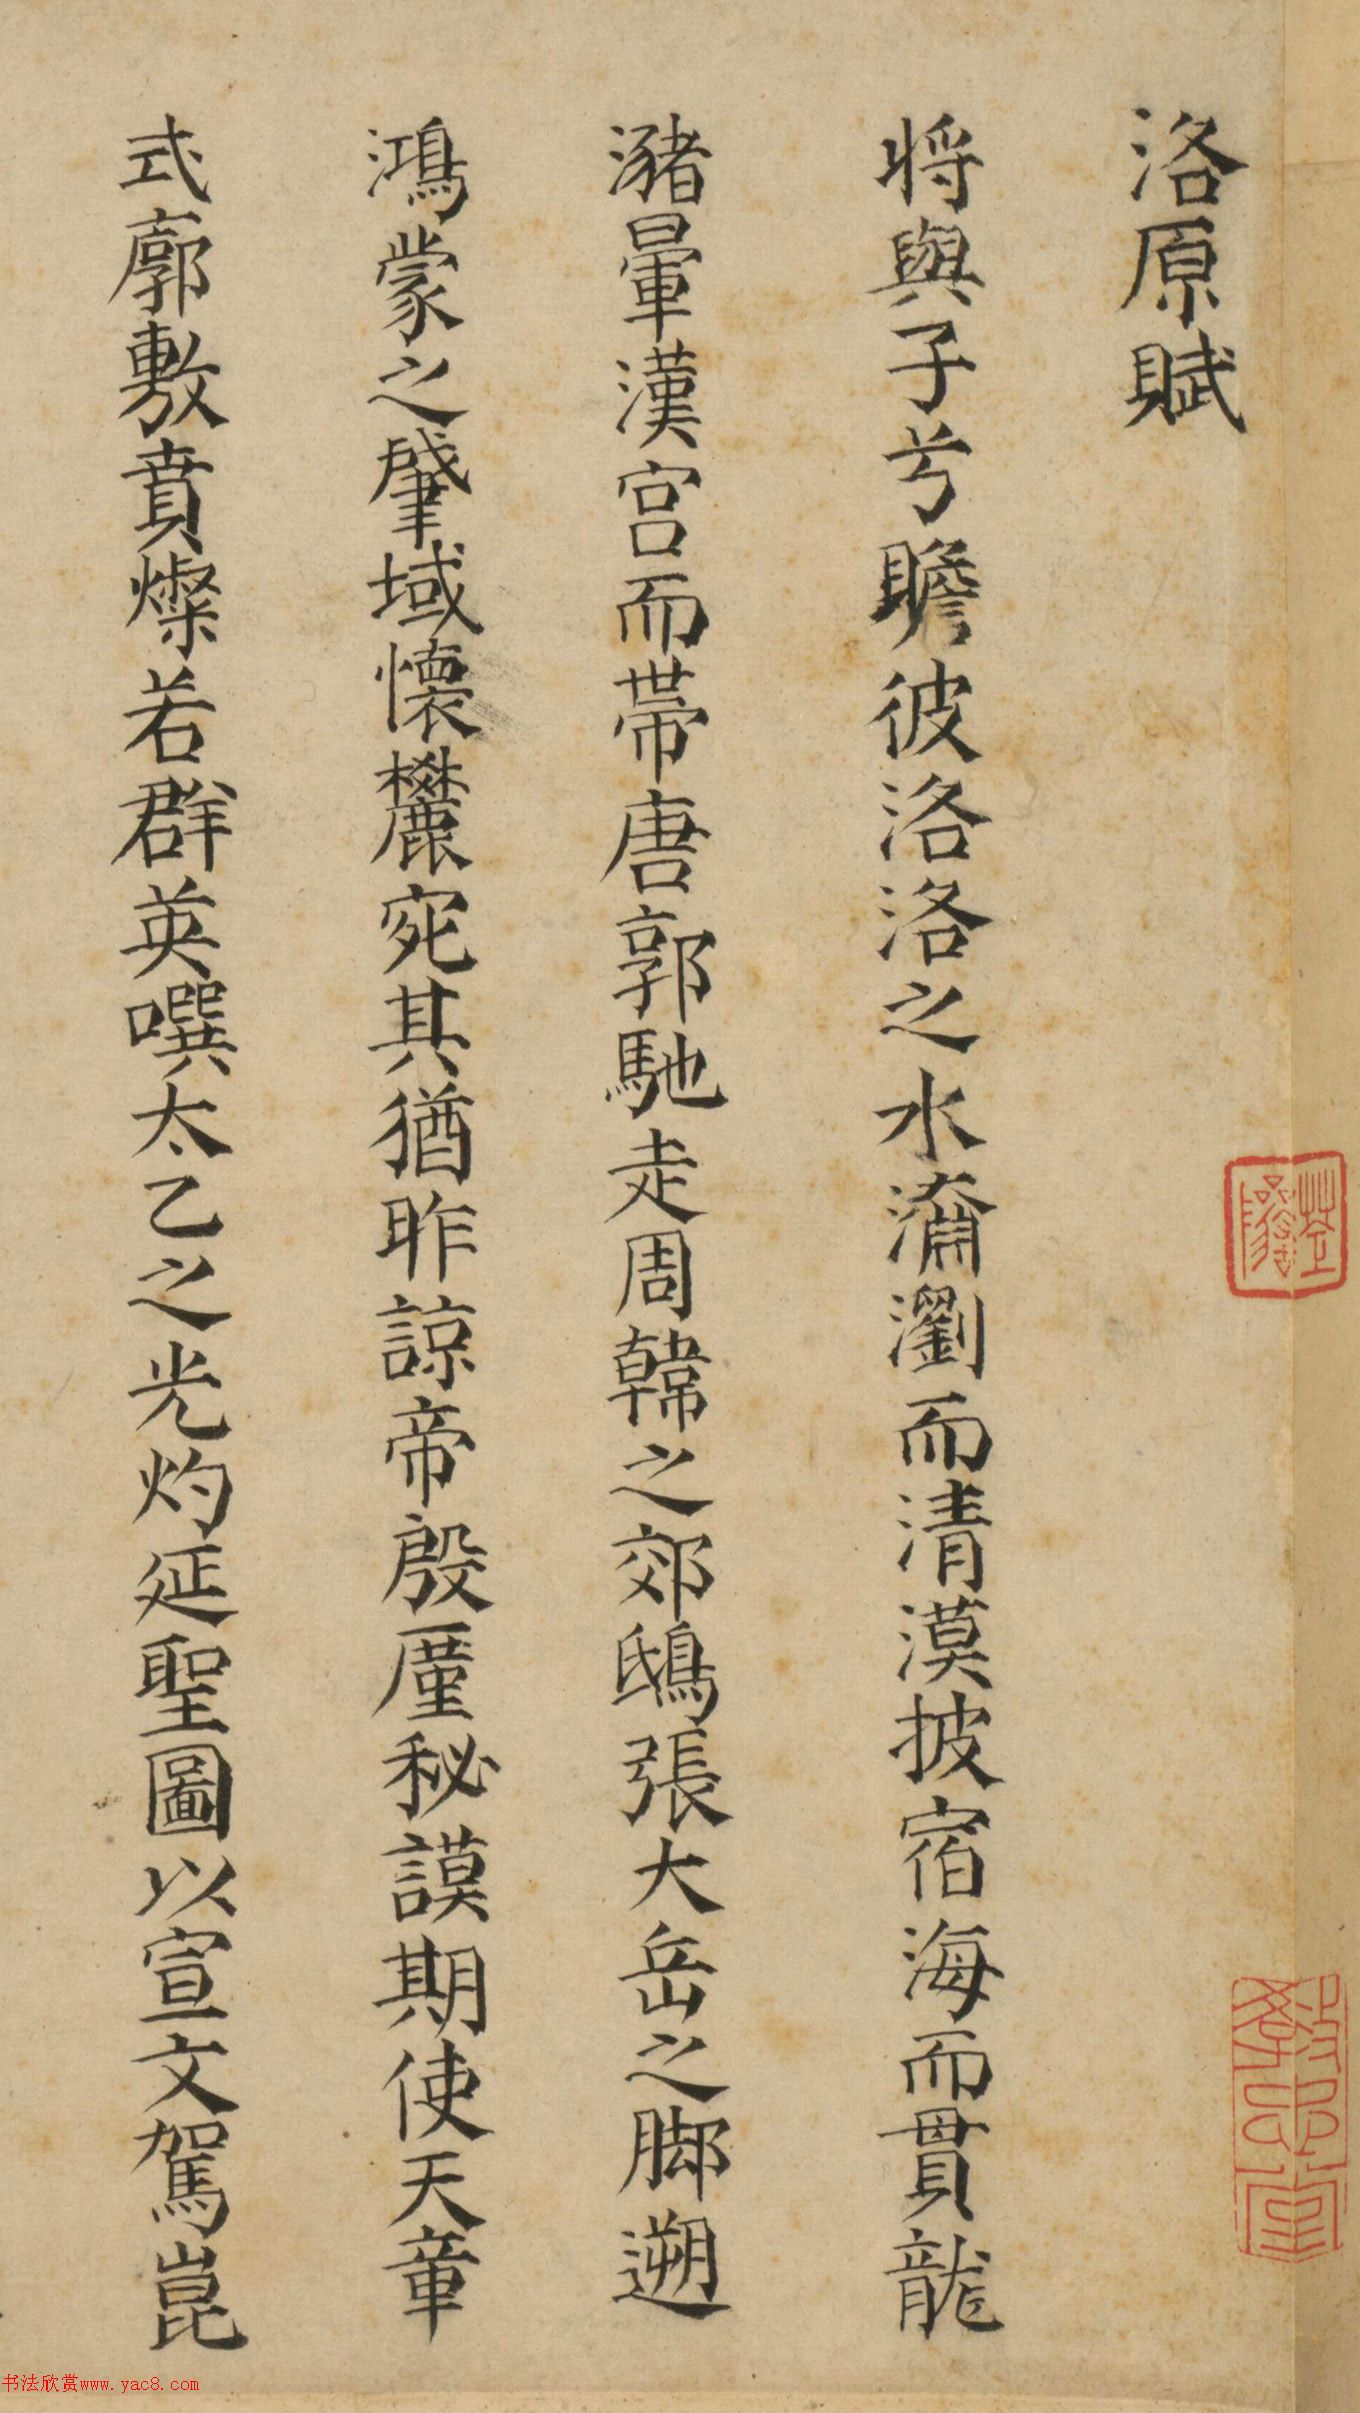 洛原賦
將與子兮瞻彼洛洛之水㵾瀏而清漠披宿海而貫龍
瀦暈漢宮而帶唐郭馳走周韓之郊鴟張大岳之脚遡
鴻蒙之肇域懷麓宛其猶昨諒帝殷厪秘謨期使天章
式廓敷賁燦若群英噀太乙之光灼延聖圖以宣文駕崑
书法欣赏www.yac8.com